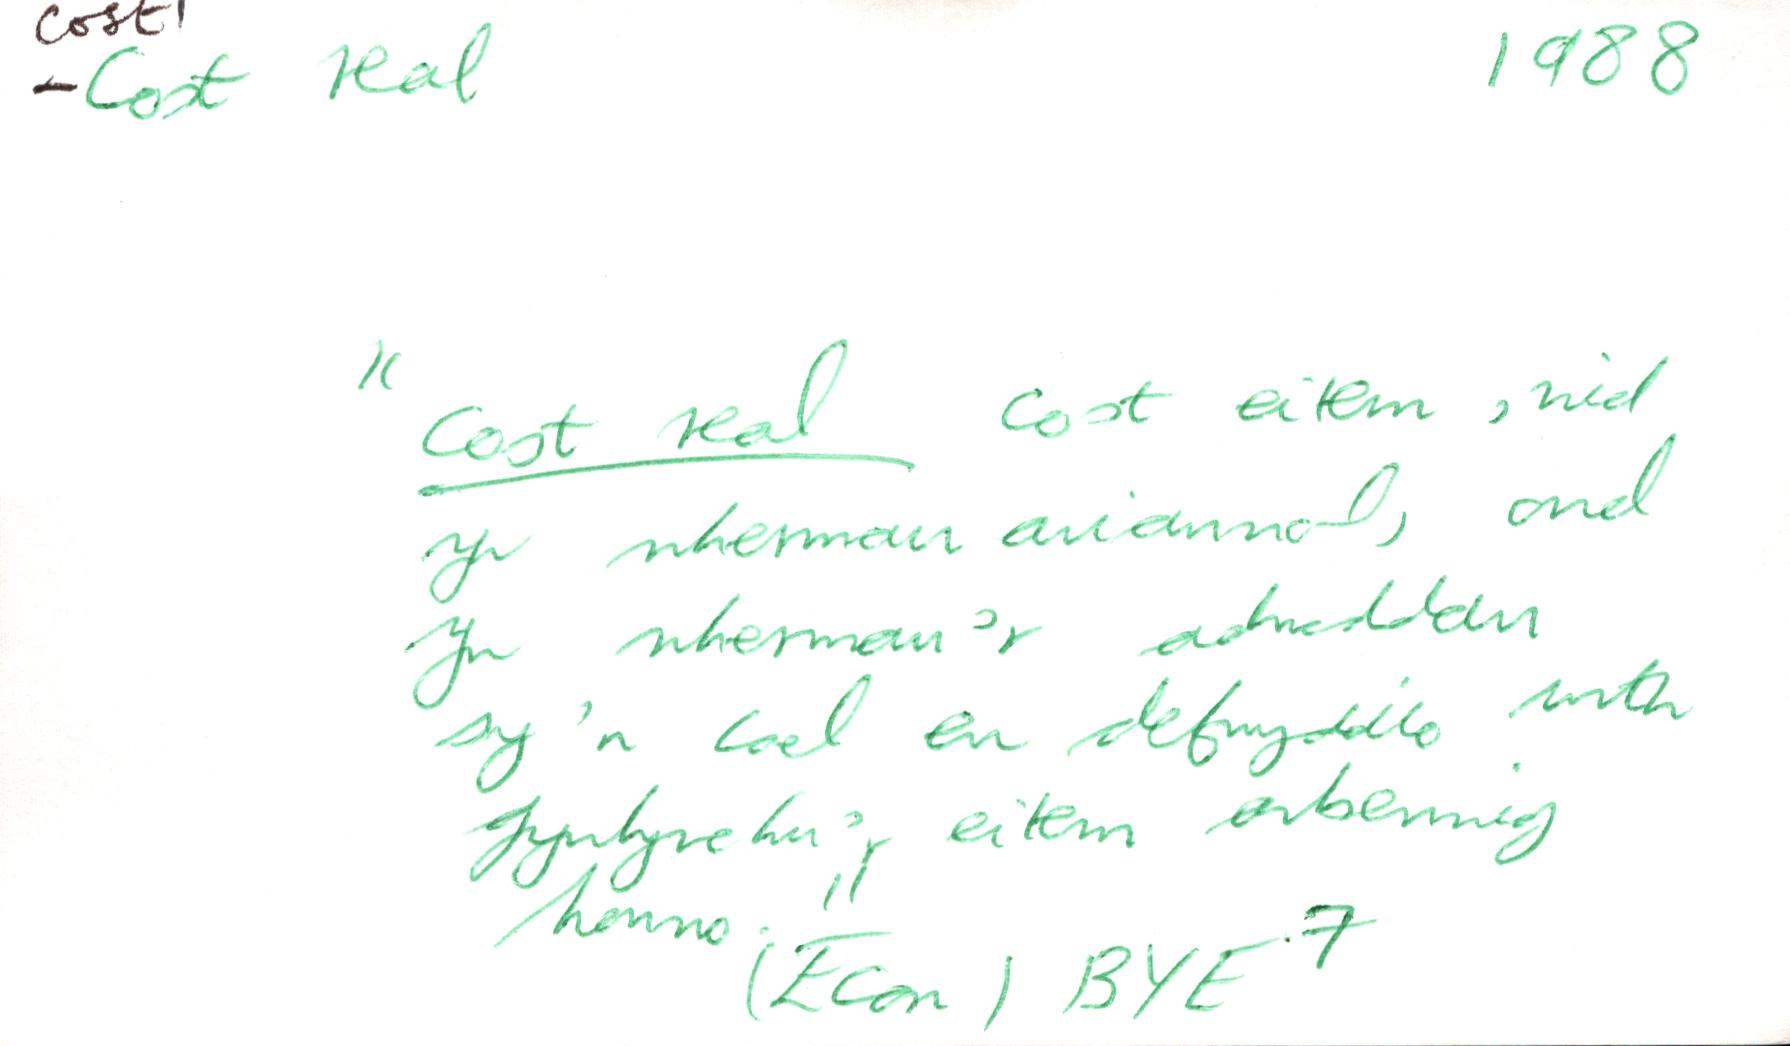 cost¹
- Cost real 1988
"Cost real Cost eitem, nid
yn nhermau ariannol, ond
yn nhermau'r adnoddau
sy'n cael eu defnyddio wrth
gynhyrchu'r eitem arbennig
honno."
(Econ) BYE 7